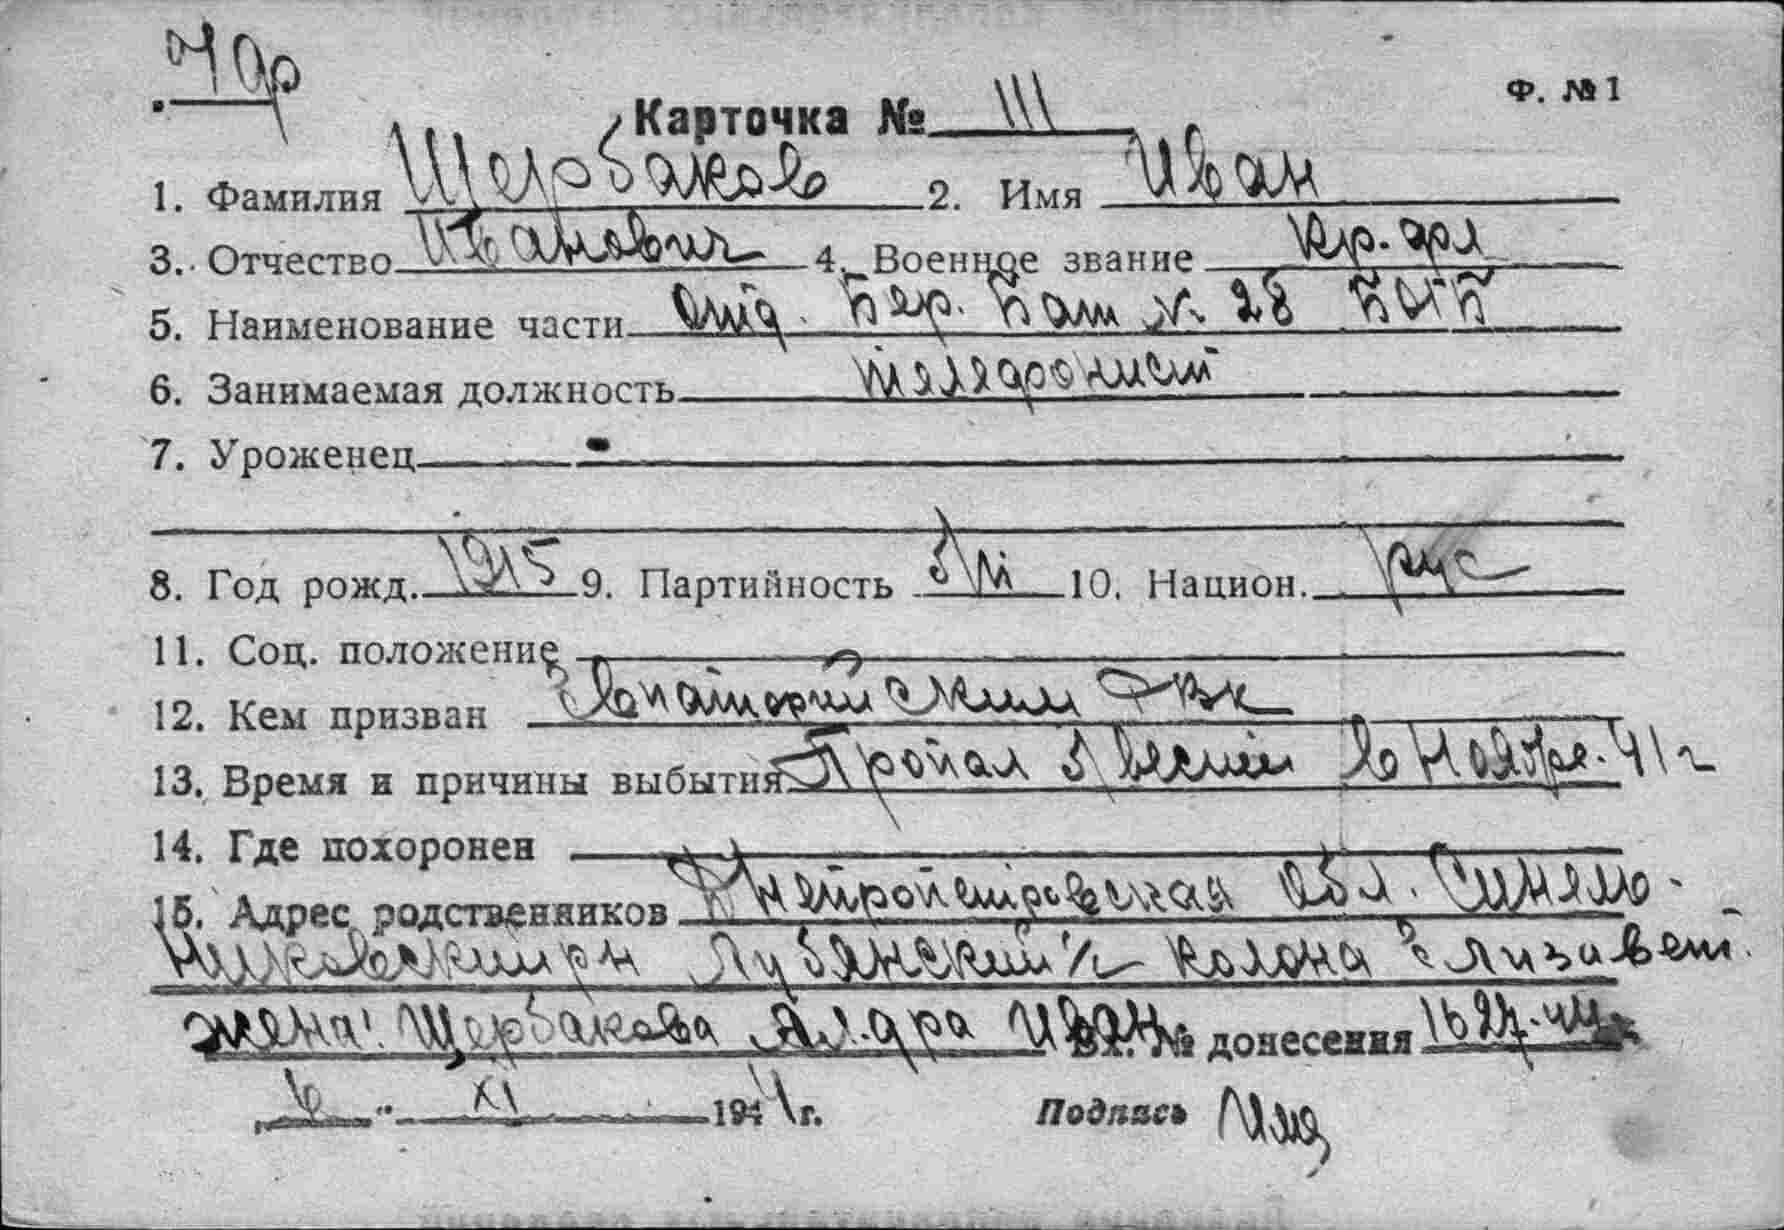 Ф. №1
Карточка № 111
1. Фамилия Щербаков 2. Имя Иван
3. Отчество Иванович 4. Военное звание кр. фл
5. Наименование части отд. Бер. Бат № 28 БОГБ
6. Занимаемая должность телефонист
7. Уроженец -
8. Год рожд. 1915 9. Партийность б/п 10. Национ. рус
11. Соц. положение
12. Кем призван Евпаторийским РВК
13. Время и причины выбытия Пропал б/вести в ноябре 41 г
14. Где похоронен
15. Адрес родственников Днепропетровская обл. Синель-
никовский рн Лубянский с/с колона Елизавет.
жена: Щербакова Ал-дра Иван Вх. № донесения 1627.44
„6" XI 1944 г. Подпись